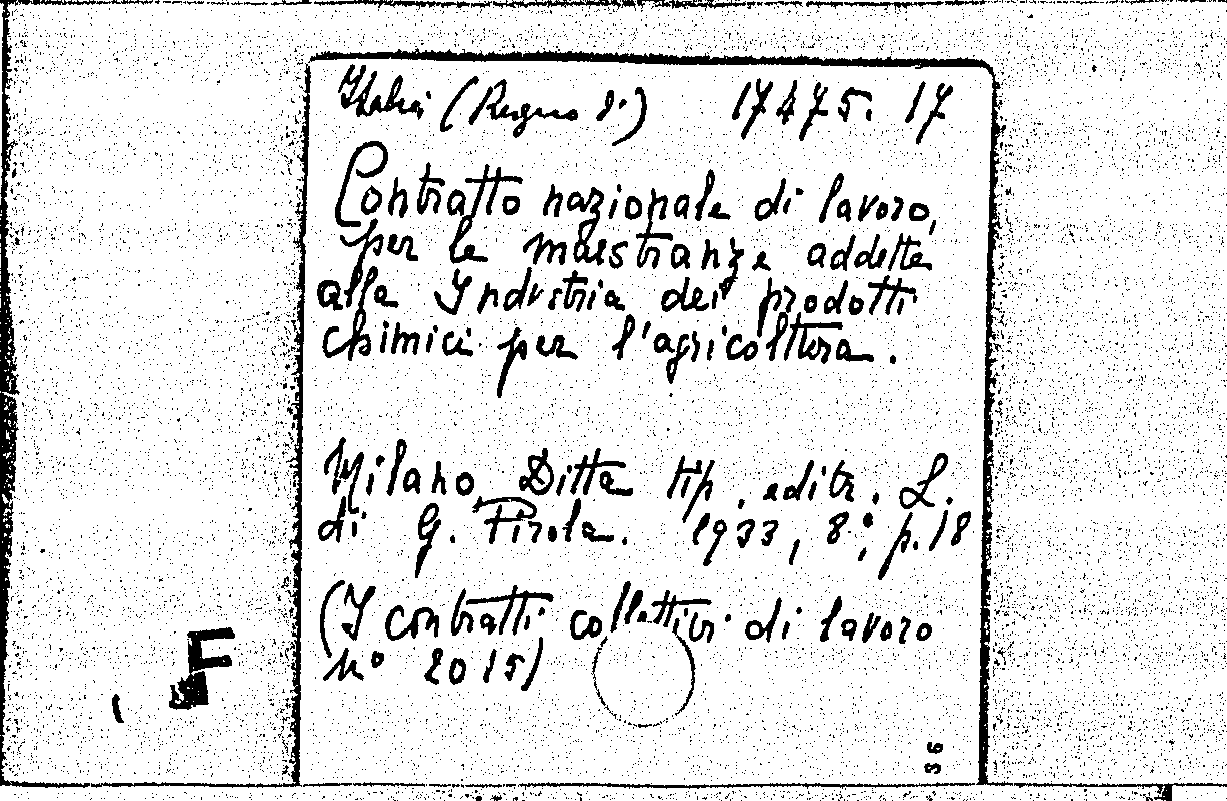 Italia (Regno di) 17475. 17
Contratto nazionale di lavoro,
per le maestranze addette
alla Industria dei prodotti
chimici per l'agricoltura.
Milano, Ditta tip. editr. L.
di G. Pirola. 1933, 8°, p. 18
(I contratti collettivi di lavoro
n° 2015)
F
36